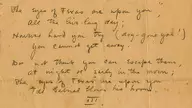 The Eyes of Texas are upon you,
All the live long day;
The Eyes of Texas are upon you
you cannot get away.
Do not think you can escape them,
At night or early in the morn;
The Eyes of Texas are upon you
Till Gabriel blows his horn.